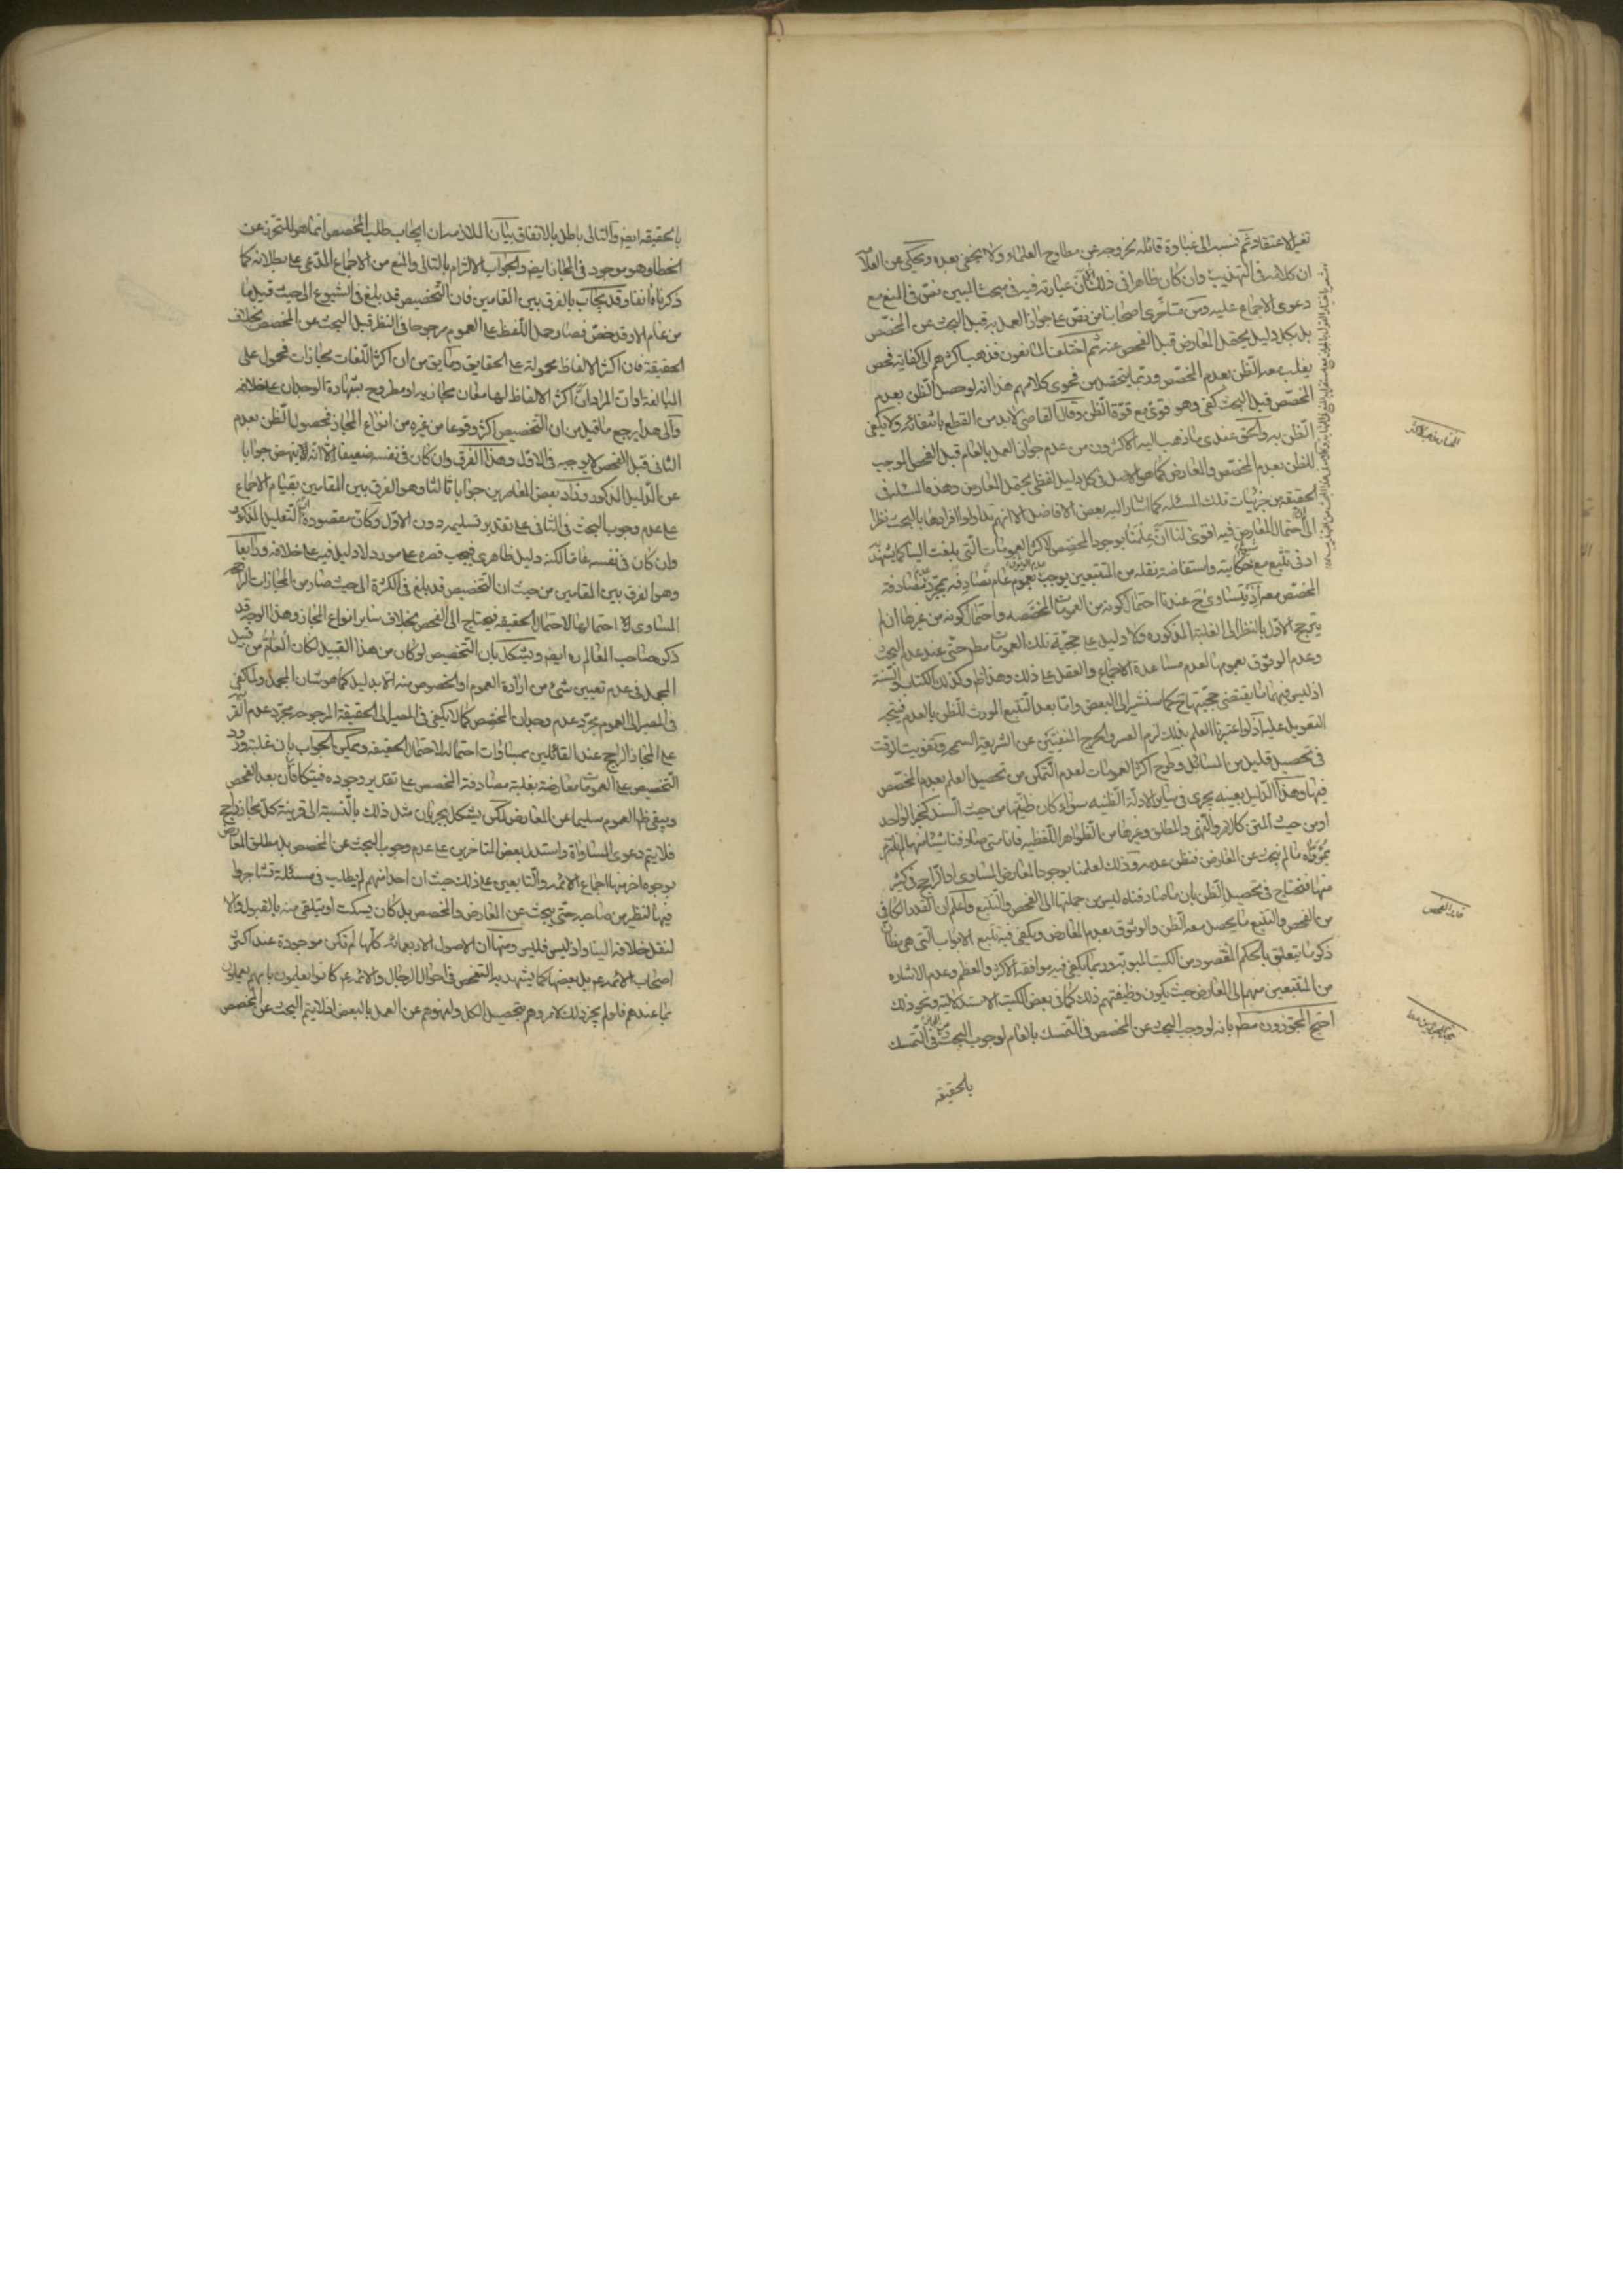 تغير الاعتقاد ثم نسبه الى غباوة قائله بخروجه عن مطارح العلماء ولا يخفى بعده ويحكى عن العلامة
ان كلامه في التهذيب وان كان ظاهرا في ذلك لكن عبارته فيه في مبحث المبين نص في المنع مع
دعوى الاجماع عليه ومن متأخرى اصحابنا من نص على جواز العمل به قبل البحث عن المخصص
بل بكل دليل يحتمل المعارض قبل الفحص عنه ثم اختلف المانعون فذهب اكثرهم الى كفاية فحص
يغلب معه الظن بعدم المخصص وربما يتحصل من فحوى كلامهم هذا انه لو حصل الظن بعدم
المخصص قبل البحث كفى وهو قوى مع قوة الظن وقال القاضى لا بد من القطع بانتفائه ولا يكفى
الظن به والحق عندى ما ذهب اليه الاكثرون من عدم جواز العمل بالعام قبل الفحص الموجب
للظن بعدم المخصص والمعارض كما هو الاصل في كل دليل لفظى يحتمل المعارض وهذه المسئلة في
الحقيقة من جزئيات تلك المسئلة كما اشار اليه بعض الافاضل الا انهم تداولوا افرادها بالبحث نظرا
الى احتمال المعارض فيه اقوى لنا ان علمنا بوجود المخصص لاكثر العمومات التى بلغت الينا كما يشهد به
ادنى تتبع مع حكايته واستفاضة نقله من المتتبعين يوجب عدم الوثوق بعموم عام نصادفه بمجرد عدم مصادفة
المخصص معه اذ يتساوى ح عندنا احتمال كونه من العمومات المخصصه واحتمال كونه من غيرها ان لم
يترجح الاول بالنظر الى الغلبة المذكوره ولا دليل على حجية تلك العمومات مطلقا حتى عند عدم البحث
وعدم الوثوق بعمومها لعدم مساعدة الاجماع والعقل على ذلك وهذا ظ وكذلك الكتاب والسنة
اذ ليس فيهما ما يقتضى حجيتها ح كما سنشير الى البعض واما بعد التتبع المورث للظن بالعدم فيتجه
التعويل عليه اذ لو اعتبرنا العلم بذلك لزم العسر والحرج المنفيين عن الشريعة السمحه وتفويت الوقت
في تحصيل قليل من المسائل وطرح اكثر العمومات لعدم التمكن من تحصيل العلم بعدم المخصص
فيها وهذا الدليل بعينه يجرى في سائر الادلة الظنيه سواء كان ظنيتها من حيث السند كخبر الواحد
او من حيث المتن كالامر والنهى والمطلق وغيرها من الظواهر اللفظيه فانا متى صادفنا شيئا منها لم نلتزم
بمؤداه ما لم نبحث عن المعارض فنظن عدمه وذلك لعلمنا بوجود المعارض المساوى او الراجح في كثير
منها فنحتاج في تحصيل الظن بان ما صادفناه ليس من جملتها الى الفحص والتتبع واعلم ان القدر الكافى
من الفحص والتتبع ما يحصل معه الظن والوثوق بعدم المعارض ويكفى فيه تتبع الابواب التى هى مظان
ذكر ما يتعلق بالحكم المقصود من الكتب المبوبة وربما يكفى فيه موافقة الاكثر والمعظم وعدم الاشاره
من المتتبعين منهم الى المعارض حيث يكون وظيفتهم ذلك كما في بعض الكتب الاستدلالية ونحو ذلك
احتج المجوزون مطلقا بانه لو وجب البحث عن المخصص في التمسك بالعام لوجب البحث عن المجاز في التمسك
بالحقيقه
بالحقيقه ايضا والتالى باطل بالاتفاق بيان الملازمه ان ايجاب طلب المخصص انما هو للتحرز عن
الخطاء وهو موجود في المجاز ايضا والجواب الالتزام بالتالى والمنع من الاجماع المدعى على بطلانه كما
ذكرناه انفا وقد يجاب بالفرق بين المقامين فان التخصيص قد بلغ في الشيوع الى حيث قيل ما
من عام الا وقد خص فصار حمل اللفظ على العموم مرجوحا في النظر قبل البحث عن المخصص بخلاف
الحقيقة فان اكثر الالفاظ محمولة على الحقايق وما يق من ان اكثر اللغات مجازات فمحمول على
المبالغة او ان المراد ان اكثر الالفاظ لها معان مجازيه او مطروح بشهادة الوجدان على خلافه
والى هذا يرجع ما قيل من ان التخصيص اكثر وقوعا من غيره من انواع المجاز فحصول الظن بعدم
الثانى قبل الفحص لا يوجبه في الاول وهذا الفرق وان كان في نفسه ضعيفا الا انه لا ينهض جوابا
عن الدليل المذكور وزاد بعض المعاصرين جوابا ثالثا وهو الفرق بين المقامين بقيام الاجماع
على عدم وجوب البحث في الثانى على تقدير تسليمه دون الاول وكان مقصوده ان التعليل المذكور
وان كان في نفسه عاما لكنه دليل ظاهرى فيجب قصره على مورد لا دليل فيه على خلافه ورابعا
وهو الفرق بين المقامين من حيث ان التخصيص قد بلغ في الكثرة الى حيث صار من المجازات الراجحه
المساوى احتمالها لاحتمال الحقيقه فيحتاج الى الفحص بخلاف ساير انواع المجاز وهذا الوجه قد
ذكره صاحب المعالم ره ايضا ويشكل بان التخصيص لو كان من هذا القبيل لكان العام من قبيل
المجمل في عدم تعيين شئ من ارادة العموم او الخصوص منه الا بدليل كما هو شان المجمل ولما كفى
في المصير الى العموم مجرد عدم وجدان المخصص كما لا يكفى في المصير الى الحقيقة المرجوحه مجرد عدم القرينة
على المجاز الراجح عند القائلين بمساوات احتماله لاحتمال الحقيقه ويمكن الجواب بان غلبة ورود
التخصيص على العمومات معارضة بغلبة مصادفة المخصص على تقدير وجوده فيتكافان بعد الفحص
ويبقى ظهور العموم سليما عن المعارض لكن يشكل بجريان مثل ذلك بالنسبة الى قرينة كل مجاز راجح
فلا يتم دعوى المساواة واستدل بعض المتاخرين على عدم وجوب البحث عن المخصص بل مطلق المعارض
بوجوه اخر منها اجماع الائمه والتابعين على ذلك حيث ان احدا منهم لم يطلب في مسئلة تشاجروا
فيها النظير من صاحبه حتى يبحث عن المعارض والمخصص بل كان يسكت او يتلقى منه بالقبول والا
لنقل خلافه الينا واذ ليس فليس ومنها ان الاصول الاربعمائه كلها لم تكن موجودة عند اكثر
اصحاب الائمه ع بل بعضها كما يشهد به التفحص في احوال الرجال والائمه ع كانوا يعلمون بانهم يعملون
بما عندهم فلو لم يجز ذلك لامروهم بتحصيل الكل ولنهوهم عن العمل بالبعض اذ لا يتم البحث عن المخصص